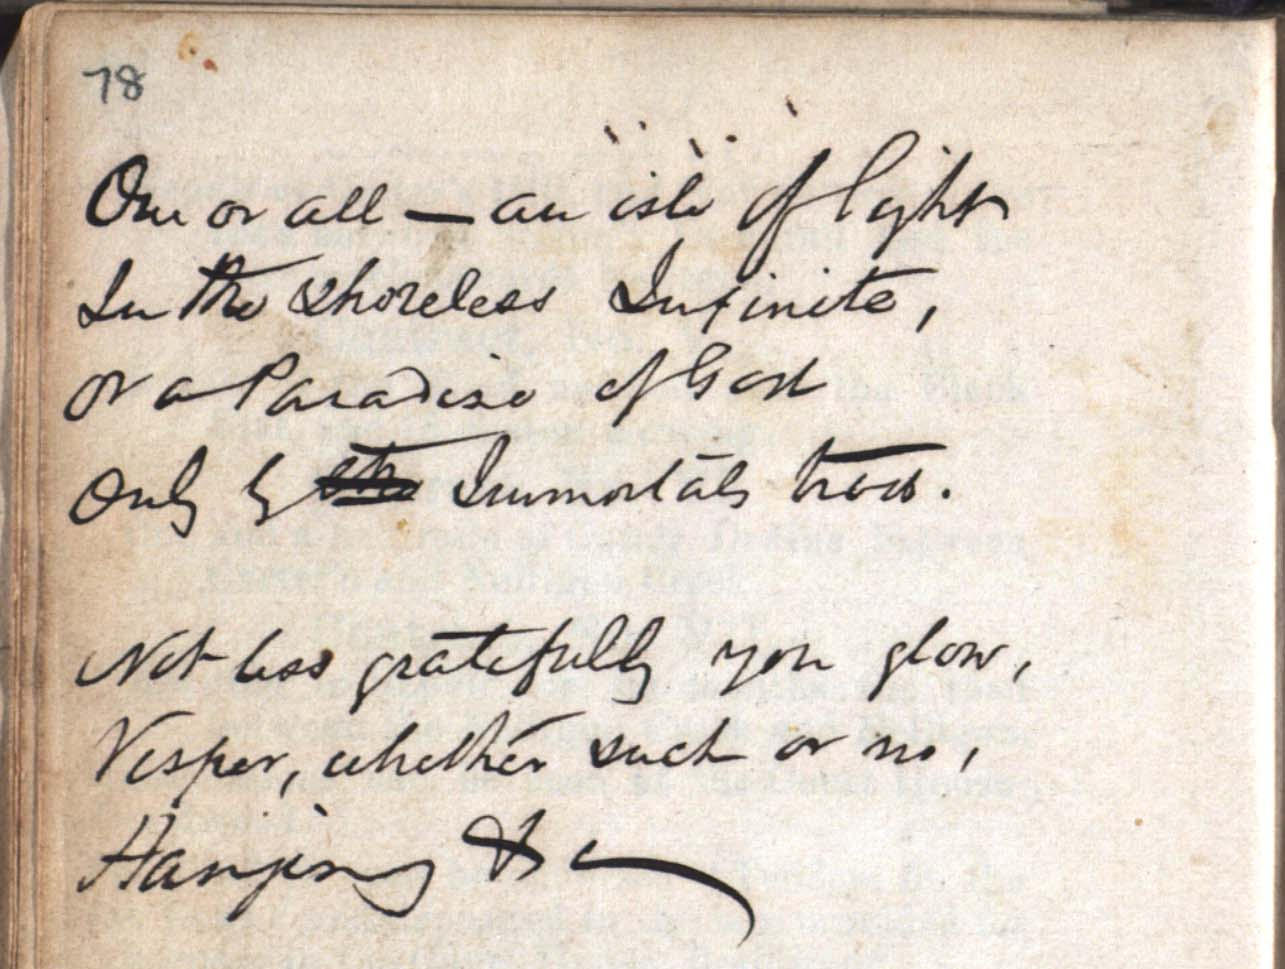 78
One or all — an isle of light
In the shoreless Infinite,
Or a Paradise of God
Only by the Immortals trod.
Not less gratefully you glow,
Vesper, whether such or no,
Hanging &c